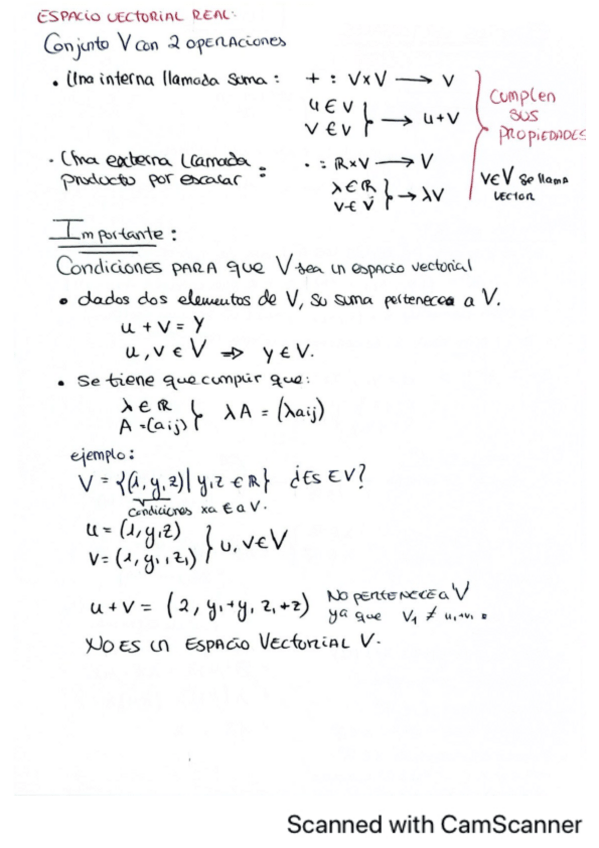 ESPACIO VECTORIAL REAL:
Conjunto V con 2 OPERACIONES
• Una interna llamada suma : + : V x V → V
u ∈ V
v ∈ V } → u+v
CUMPLEN SUS PROPIEDADES
• Una externa llamada producto por escalar : · : ℝ x V → V
λ ∈ ℝ
v ∈ V } → λV
v∈V se llama VECTOR
Importante :
Condiciones PARA que V sea un espacio vectorial
• dados dos elementos de V, su suma pertenece a V.
u + v = y
u, v ∈ V ⇒ y ∈ V.
• Se tiene que cumplir que:
λ ∈ ℝ
A = (aij) } λA = (λaij)
ejemplo:
V = {(1, y, z) | y, z ∈ ℝ} ¿Es EV?
Condiciones xa ∈ a V.
u = (1, y, z)
v = (1, y₁, z₁) } u, v ∈ V
u + v = (2, y₁+y, z₁+z) NO PERTENECE a V
ya que V₁ ≠ u₁+v₁.
NO ES UN ESPACIO VECTORIAL V.
Scanned with CamScanner